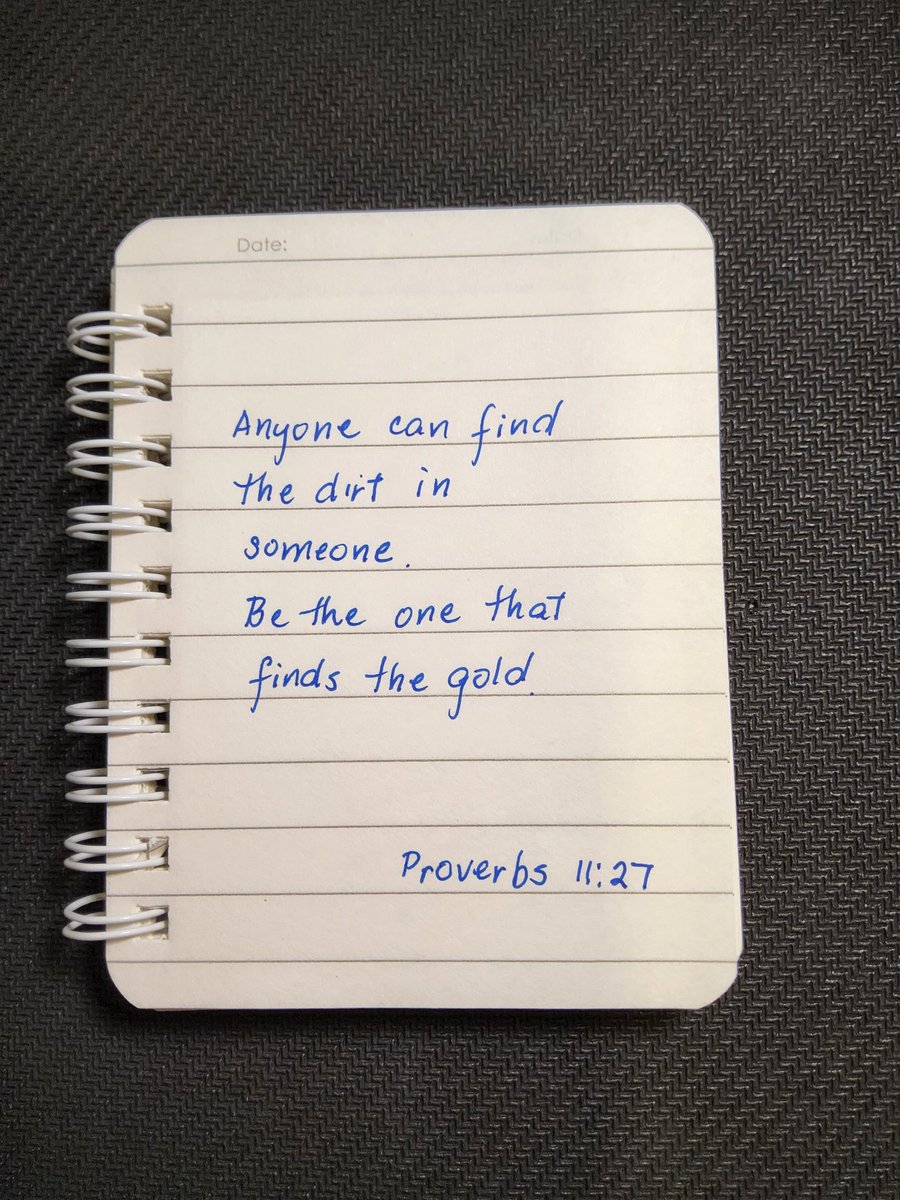 Date:
Anyone can find
the dirt in
someone.
Be the one that
finds the gold.
Proverbs 11:27